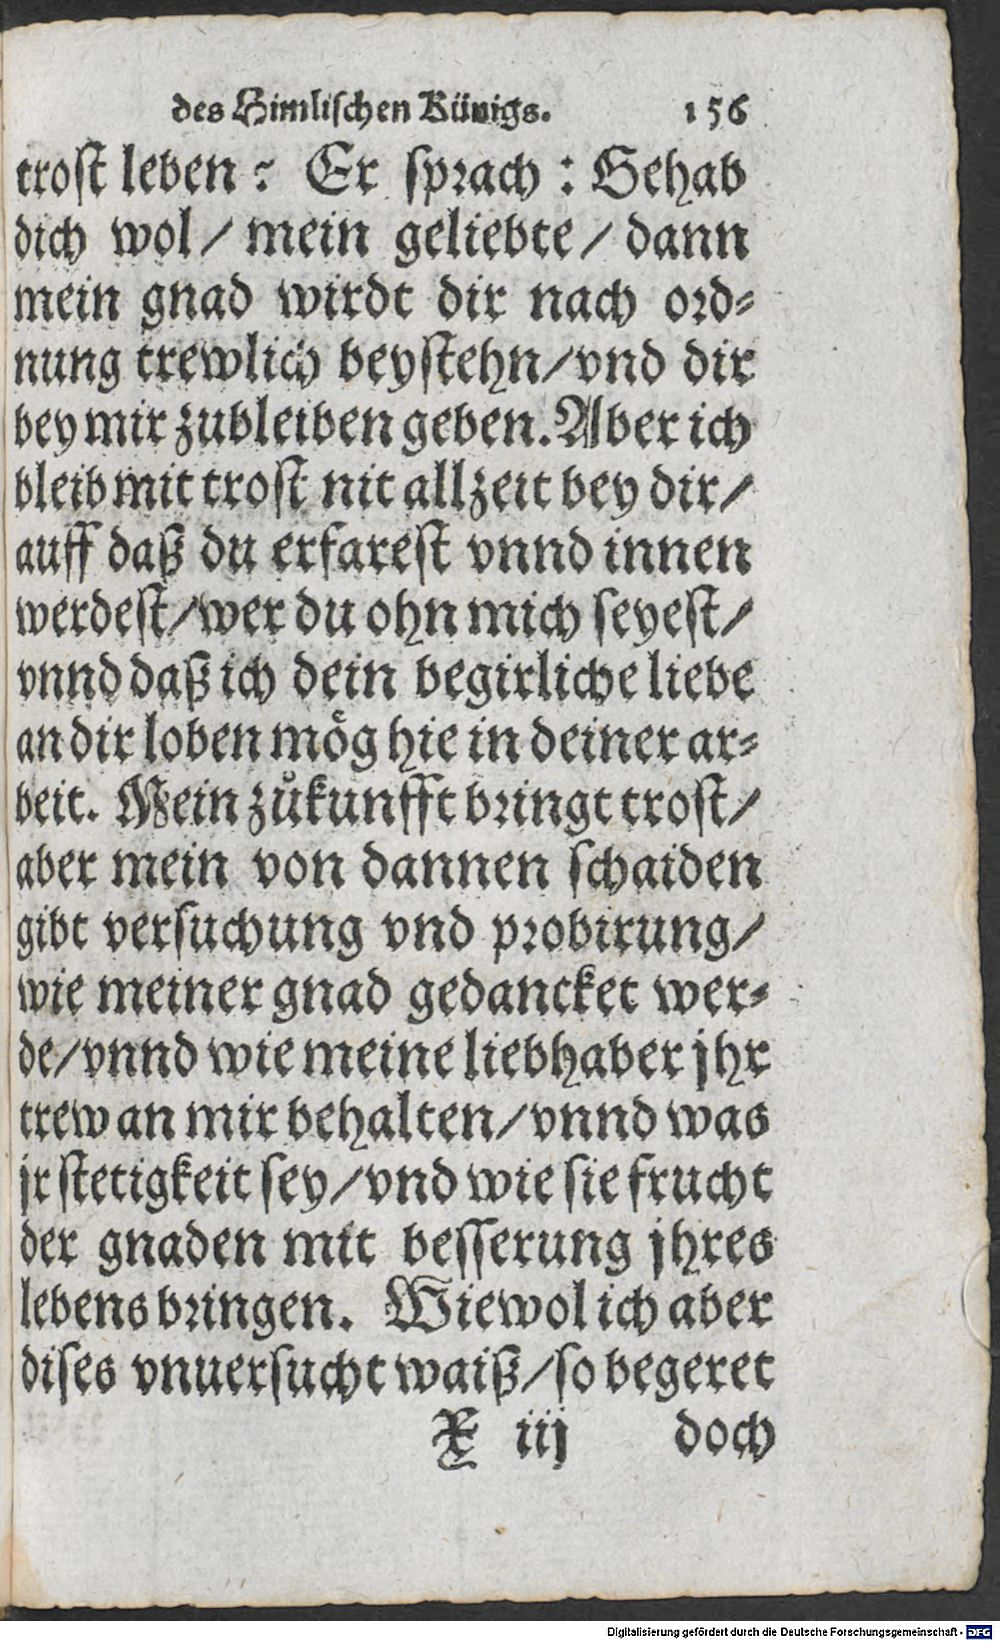 des Himlischen Künigs. 156
trost leben? Er sprach: Gehab
dich wol / mein geliebte / dann
mein gnad wirdt dir nach ord⸗
nung trewlich beystehn / vnd dir
bey mir zubleiben geben. Aber ich
bleib mit trost nit allzeit bey dir /
auff daß du erfarest vnnd innen
werdest / wer du ohn mich seyest /
vnnd daß ich dein begirliche liebe
an dir loben mög hie in deiner ar⸗
beit. Mein zůkunfft bringt trost /
aber mein von dannen schaiden
gibt versuchung vnd probirung /
wie meiner gnad gedancket wer⸗
de / vnnd wie meine liebhaber jhr
trew an mir behalten / vnnd was
jr stetigkeit sey / vnd wie sie frucht
der gnaden mit besserung jhres
lebens bringen. Wiewol ich aber
dises vnuersucht waiß / so begeret
X iij doch
Digitalisierung gefördert durch die Deutsche Forschungsgemeinschaft - DFG